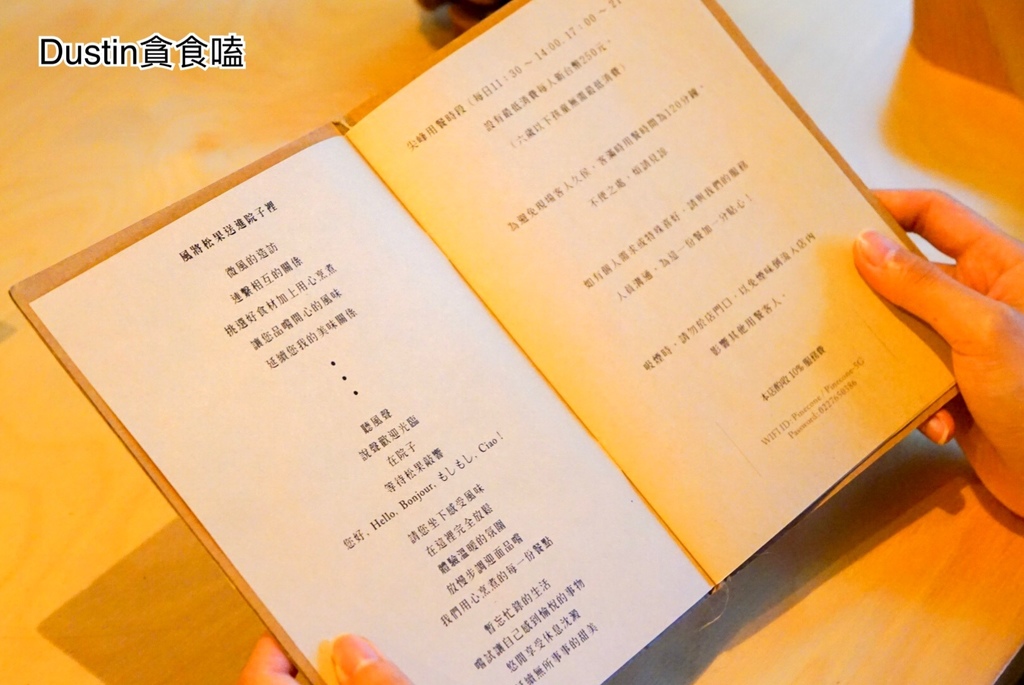 Dustin貪食嗑
風將松果送進院子裡
微風的造訪
連繫相互的關係
挑選好食材加上用心烹煮
讓您品嚐開心的風味
延續您我的美味關係
聽風聲
說聲歡迎光臨
在院子
等待松果敲響
您好, Hello, Bonjour, もしもし, Ciao!
請您坐下感受風味
在這裡完全放鬆
體驗溫暖的氛圍
放慢步調迎面品嚐
我們用心烹煮的每一份餐點
暫忘忙錄的生活
嚐試讓自己感到愉悅的事物
悠閒享受休息沈澱
延續無所事事的甜美
尖峰用餐時段(每日11:30～14:00, 17:00～21
設有最低消費每人新台幣250元。
(六歲以下孩童無需最低消費)
為避免現場客人久候, 客滿時用餐時間為120分鐘。
不便之處, 煩請見諒
如有個人需求或特殊喜好, 請與我們的服務
人員溝通, 為這一份餐加一分貼心!
吸煙時, 請勿於店門口, 以免煙味倒灌入店內
影響其他用餐客人。
本店酌收10%服務費
WIFI ID: Pinecone, Pinecone-5G
Password: 0227650386